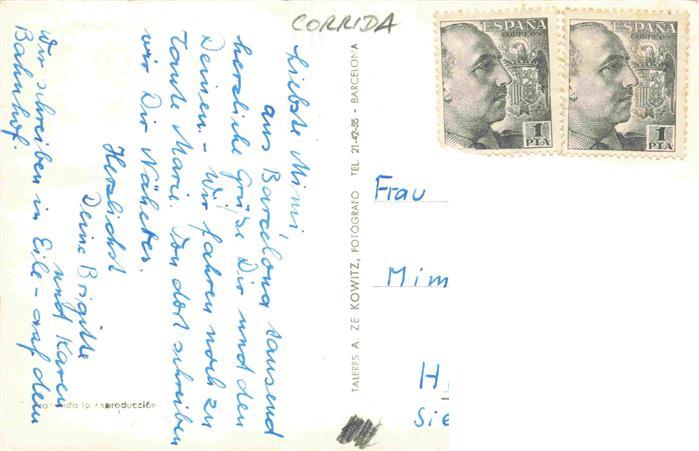 CORRIDA
Liebste Mimi,
aus Barcelona tausend
herzliche Grüße Dir und den
Deinen. - Wir fahren noch zu
Tante Marie. Von dort schreiben
wir Dir Näheres.
Herzlichst
Deine Brigitte
und Karen
Wir schreiben in Eile - auf dem
Bahnhof.
reproducción
TALERES A. ZE KOWITZ, FOTÓGRAFO TEL. 21-42-55 - BARCELONA
ESPAÑA
CORREOS
1
PTA
ESPAÑA
CORREOS
1
PTA
Frau
Mim
H
Sie